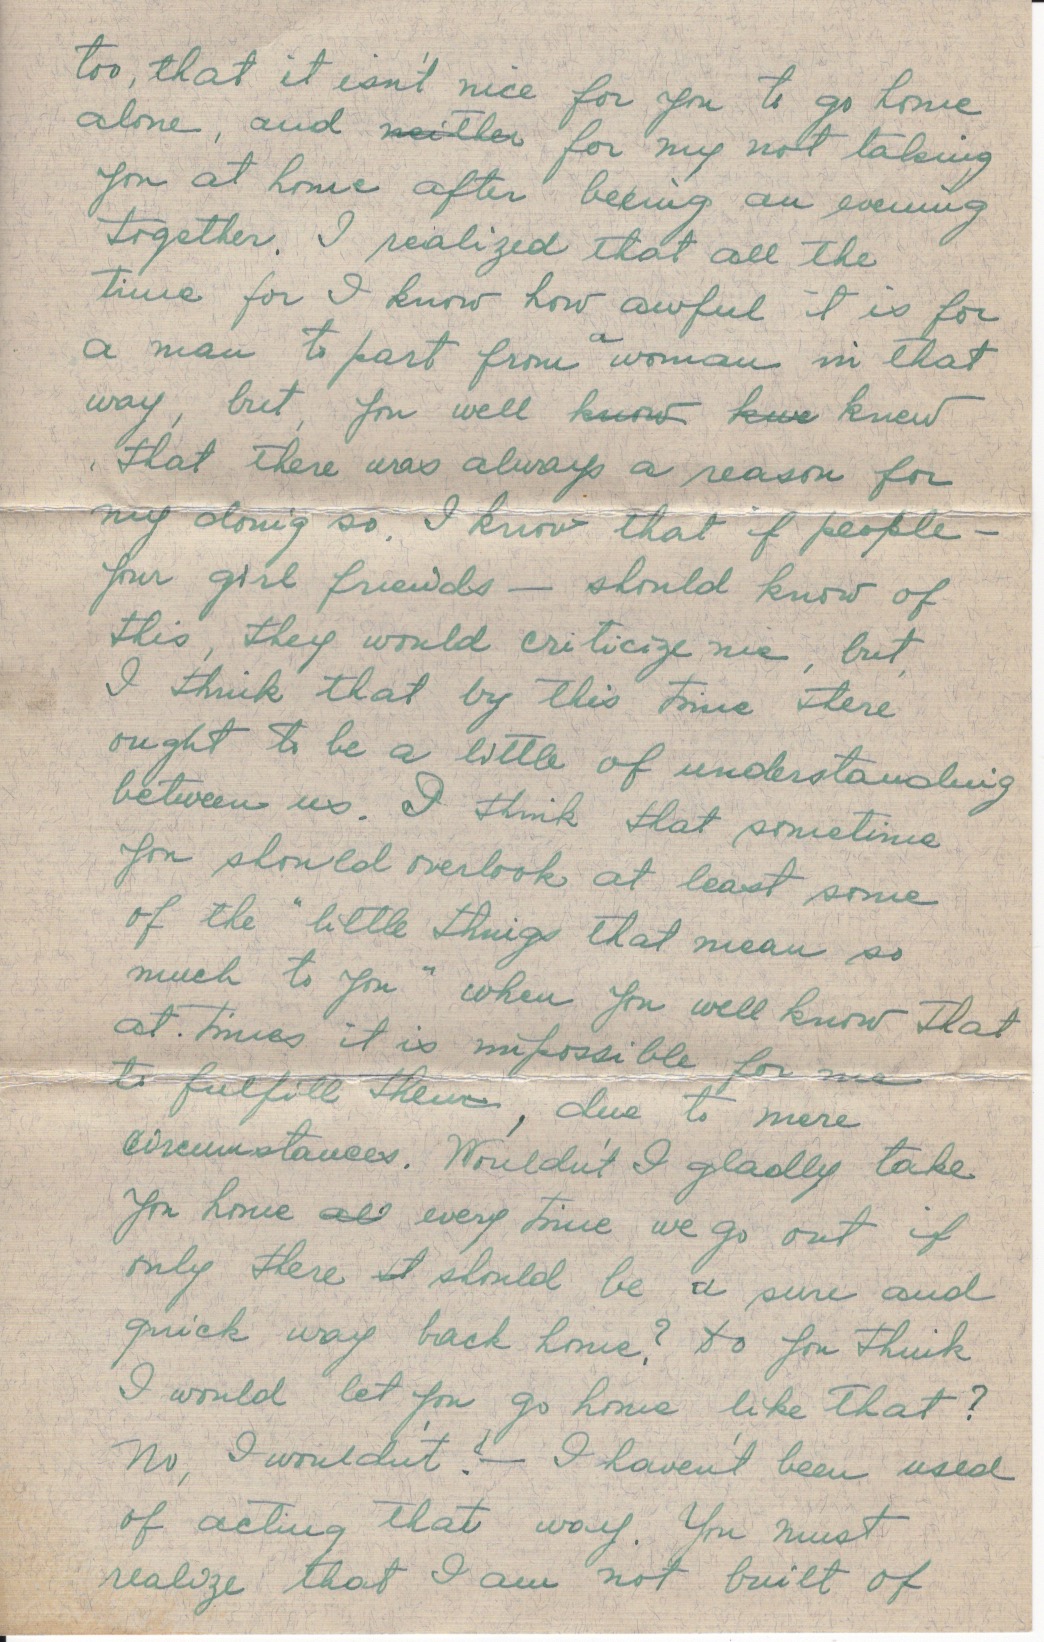 too, that it isn't nice for you to go home
alone, and neither for my not taking
you at home after beeing an evening
together. I realized that all the
time for I know how awful it is for
a man to part from a woman in that
way, but, you well know kwe knew
that there was always a reason for
my doing so. I know that if people -
your girl friends - should know of
this, they would criticize me, but,
I think that by this time there
ought to be a little of understanding
between us. I think that sometime
you should overlook at least some
of the "little things that mean so
much to you" when you well know that
at times it is impossible for me
to fulfill them, due to mere
circumstances. Wouldn't I gladly take
you home all every time we go out if
only there st should be a sure and
quick way back home? Do you think
I would let you go home like that?
No, I wouldn't! - I haven't been used
of acting that way. You must
realize that I am not built of